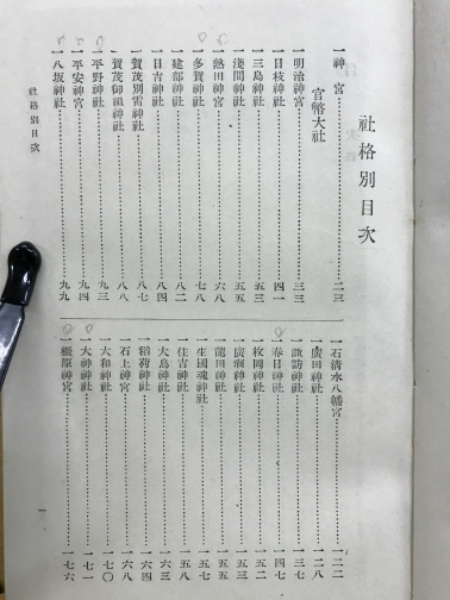 社格別目次
一神宮…………二三
官幣大社
一明治神宮…………三三
一日枝神社…………四一
一三島神社…………五三
一淺間神社…………五五
一熱田神宮…………六八
一多賀神社…………七八
一建部神社…………八二
一日吉神社…………八四
一賀茂別雷神社…………八七
一賀茂御祖神社…………八八
一平野神社…………九三
一平安神宮…………九四
一八坂神社…………九九
一石清水八幡宮…………一二二
一廣田神社…………一二八
一諏訪神社…………一三七
一春日神社…………一四七
一枚岡神社…………一五二
一廣瀨神社…………一五三
一龍田神社…………一五五
一生國魂神社…………一五七
一住吉神社…………一五八
一大鳥神社…………一六三
一稻荷神社…………一六四
一石上神宮…………一六八
一大和神社…………一七〇
一大神神社…………一七一
一橿原神宮…………一七六
社格別目次
一